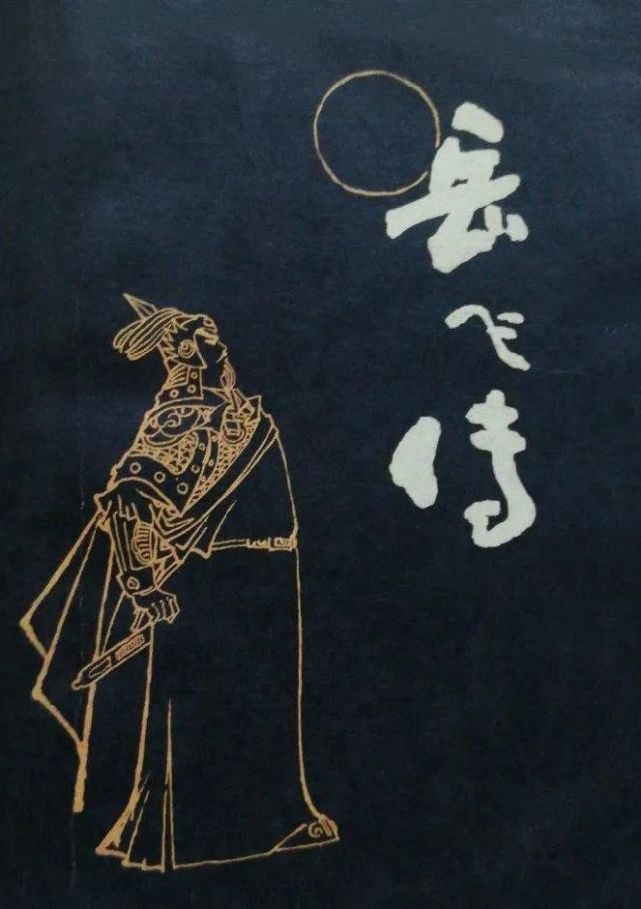 岳飞传